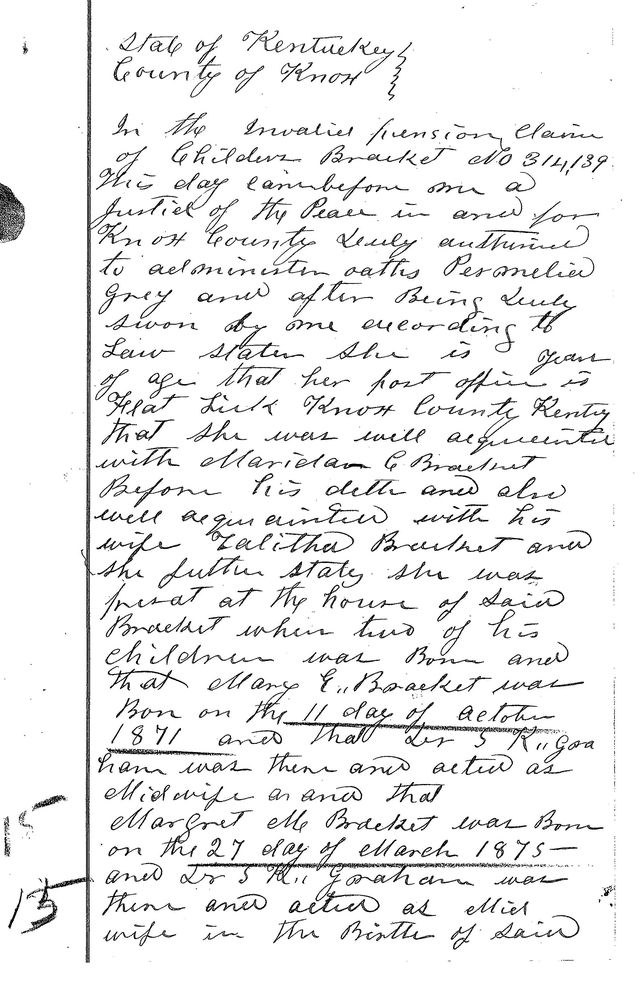 State of Kentuckey
County of Knox
In the Invalied pension Claim
of Childern Bracket No 314,139
this day came before me a
Justice of the Peace in and for
Knox County Duly autherised
to administer oaths Permelia
Grey and after Being Duly
sworn by me according to
Law states she is years
of age that her post office is
Flat Lick Knox County Kentuy
that she was well acquainted
with Maridan C Bracket
Before his deth and also
well acquainted with his
wife Talitha Bracket and
she futher states she was
presat at the house of said
Bracket when two of his
children was Born and
that Mary E,, Bracket was
Born on the 11 day of October
1871 and that Dr S K,, Gra
ham was there and acted as
Midwife a and that
Margret M Bracket was Born
on the 27 day of March 1875 —
and Dr S K,, Graham was
there and acted as Mid
wife in the Birth of said
15
15